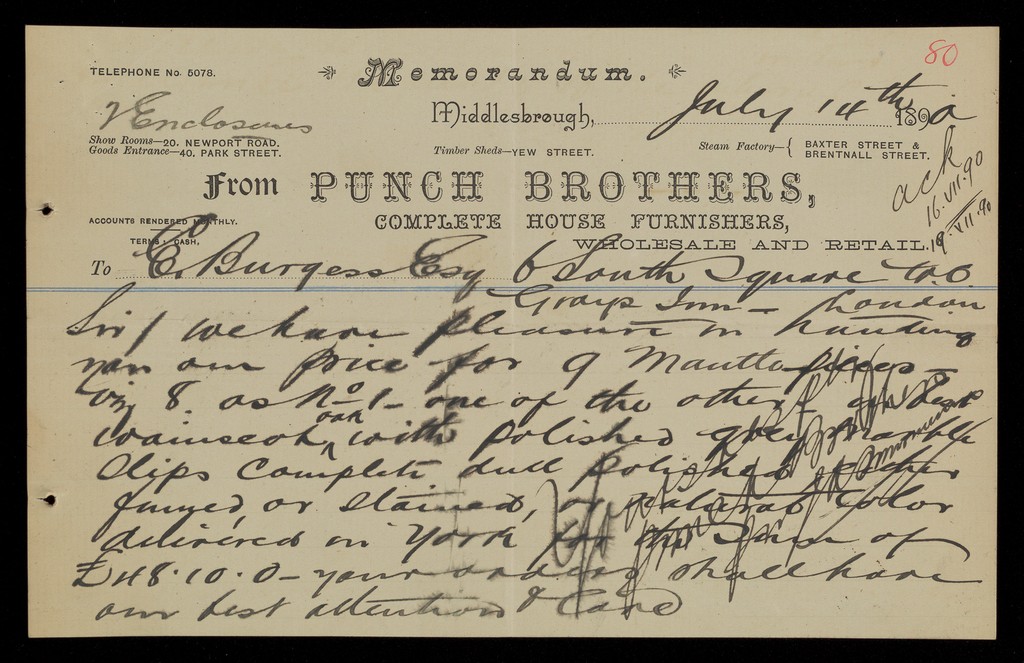 80
TELEPHONE No. 5078.
Memorandum.
2 Enclosures
Middlesbrough, July 14th 1890
Show Rooms—20. NEWPORT ROAD.
Goods Entrance—40. PARK STREET.
Timber Sheds—YEW STREET.
Steam Factory—{ BAXTER STREET &
BRENTNALL STREET.
ack
16.VII.90
19.VII.90
From PUNCH BROTHERS,
ACCOUNTS RENDERED MONTHLY.
COMPLETE HOUSE FURNISHERS,
TERMS: CASH,
WHOLESALE AND RETAIL.
To E. Burgess Esq 6 South Square W.C.
Grays Inn — London
Sir/ we have pleasure in handing
you our price for 9 Mantle pieces —
viz 8 as No 1 — one of the other in best
wainscot oak with polished grey marble
slips complete dull polished either
fumed, or stained, or natural color
delivered in York for the Sum of
£48.10.0 — your orders shall have
our best attention & Care